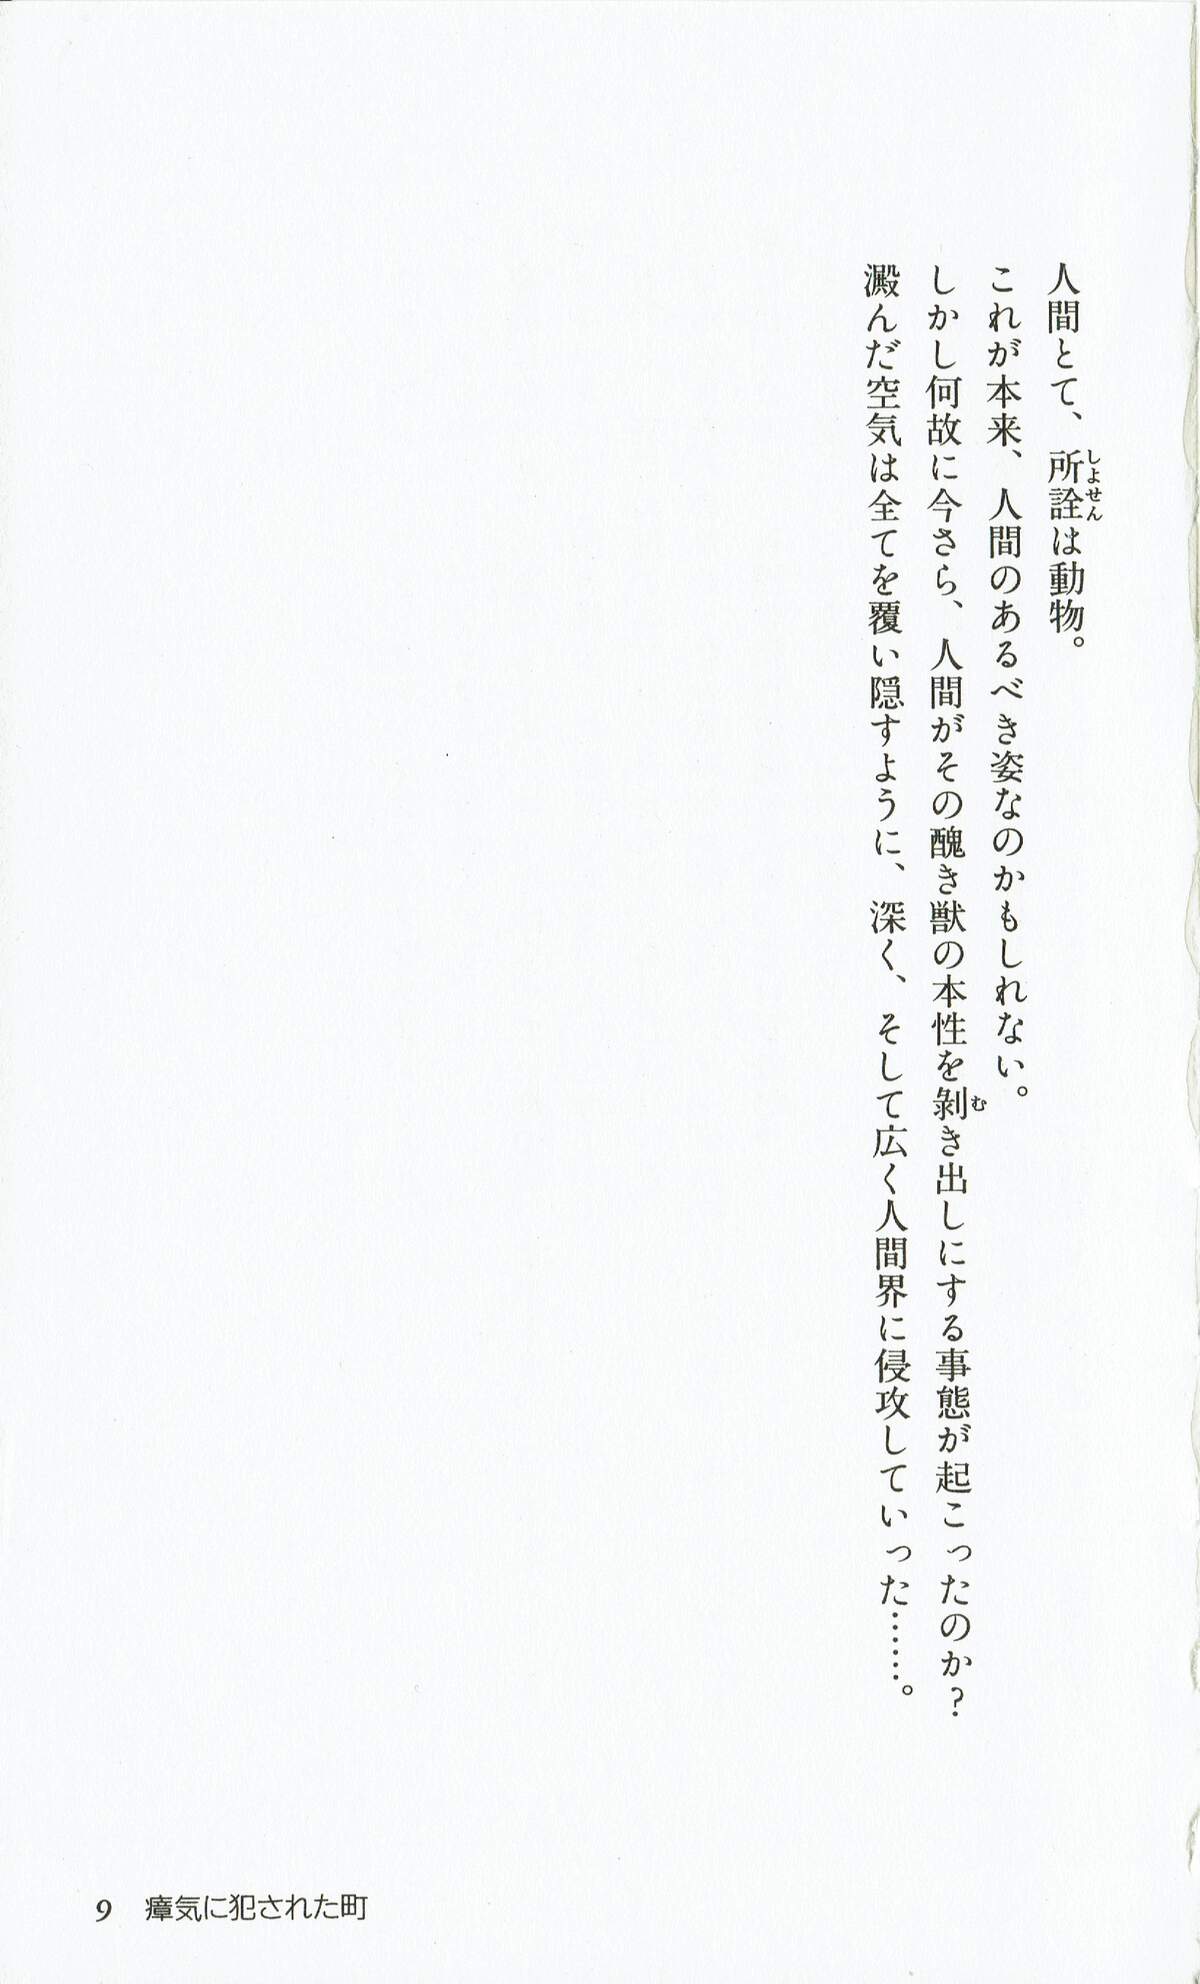 人間とて、所詮は動物。
しょせん
これが本来、人間のあるべき姿なのかもしれない。
しかし何故に今さら、人間がその醜き獣の本性を剝き出しにする事態が起こったのか？
む
澱んだ空気は全てを覆い隠すように、深く、そして広く人間界に侵攻していった……。
9 瘴気に犯された町